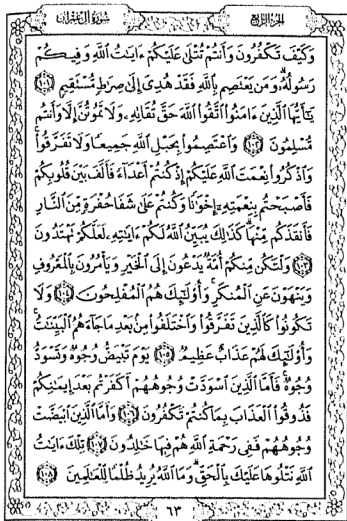 سورة آل عمران الجزء الرابع
وَكَيْفَ تَكْفُرُونَ وَأَنتُمْ تُتْلَىٰ عَلَيْكُمْ ءَايَٰتُ ٱللَّهِ وَفِيكُمْ
رَسُولُهُۥ وَمَن يَعْتَصِم بِٱللَّهِ فَقَدْ هُدِىَ إِلَىٰ صِرَٰطٍ مُّسْتَقِيمٍ ١٠١
يَٰٓأَيُّهَا ٱلَّذِينَ ءَامَنُوا۟ ٱتَّقُوا۟ ٱللَّهَ حَقَّ تُقَاتِهِۦ وَلَا تَمُوتُنَّ إِلَّا وَأَنتُم
مُّسْلِمُونَ ١٠٢ وَٱعْتَصِمُوا۟ بِحَبْلِ ٱللَّهِ جَمِيعًا وَلَا تَفَرَّقُوا۟
وَٱذْكُرُوا۟ نِعْمَتَ ٱللَّهِ عَلَيْكُمْ إِذْ كُنتُمْ أَعْدَآءً فَأَلَّفَ بَيْنَ قُلُوبِكُمْ
فَأَصْبَحْتُم بِنِعْمَتِهِۦٓ إِخْوَٰنًا وَكُنتُمْ عَلَىٰ شَفَا حُفْرَةٍ مِّنَ ٱلنَّارِ
فَأَنقَذَكُم مِّنْهَا كَذَٰلِكَ يُبَيِّنُ ٱللَّهُ لَكُمْ ءَايَٰتِهِۦ لَعَلَّكُمْ تَهْتَدُونَ
١٠٣ وَلْتَكُن مِّنكُمْ أُمَّةٌ يَدْعُونَ إِلَى ٱلْخَيْرِ وَيَأْمُرُونَ بِٱلْمَعْرُوفِ
وَيَنْهَوْنَ عَنِ ٱلْمُنكَرِ وَأُو۟لَٰٓئِكَ هُمُ ٱلْمُفْلِحُونَ ١٠٤ وَلَا
تَكُونُوا۟ كَٱلَّذِينَ تَفَرَّقُوا۟ وَٱخْتَلَفُوا۟ مِنۢ بَعْدِ مَا جَآءَهُمُ ٱلْبَيِّنَٰتُ
وَأُو۟لَٰٓئِكَ لَهُمْ عَذَابٌ عَظِيمٌ ١٠٥ يَوْمَ تَبْيَضُّ وُجُوهٌ وَتَسْوَدُّ
وُجُوهٌ فَأَمَّا ٱلَّذِينَ ٱسْوَدَّتْ وُجُوهُهُمْ أَكَفَرْتُم بَعْدَ إِيمَٰنِكُمْ
فَذُوقُوا۟ ٱلْعَذَابَ بِمَا كُنتُمْ تَكْفُرُونَ ١٠٦ وَأَمَّا ٱلَّذِينَ ٱبْيَضَّتْ
وُجُوهُهُمْ فَفِى رَحْمَةِ ٱللَّهِ هُمْ فِيهَا خَٰلِدُونَ ١٠٧ تِلْكَ ءَايَٰتُ
ٱللَّهِ نَتْلُوهَا عَلَيْكَ بِٱلْحَقِّ وَمَا ٱللَّهُ يُرِيدُ ظُلْمًا لِّلْعَٰلَمِينَ ١٠٨
٦٣